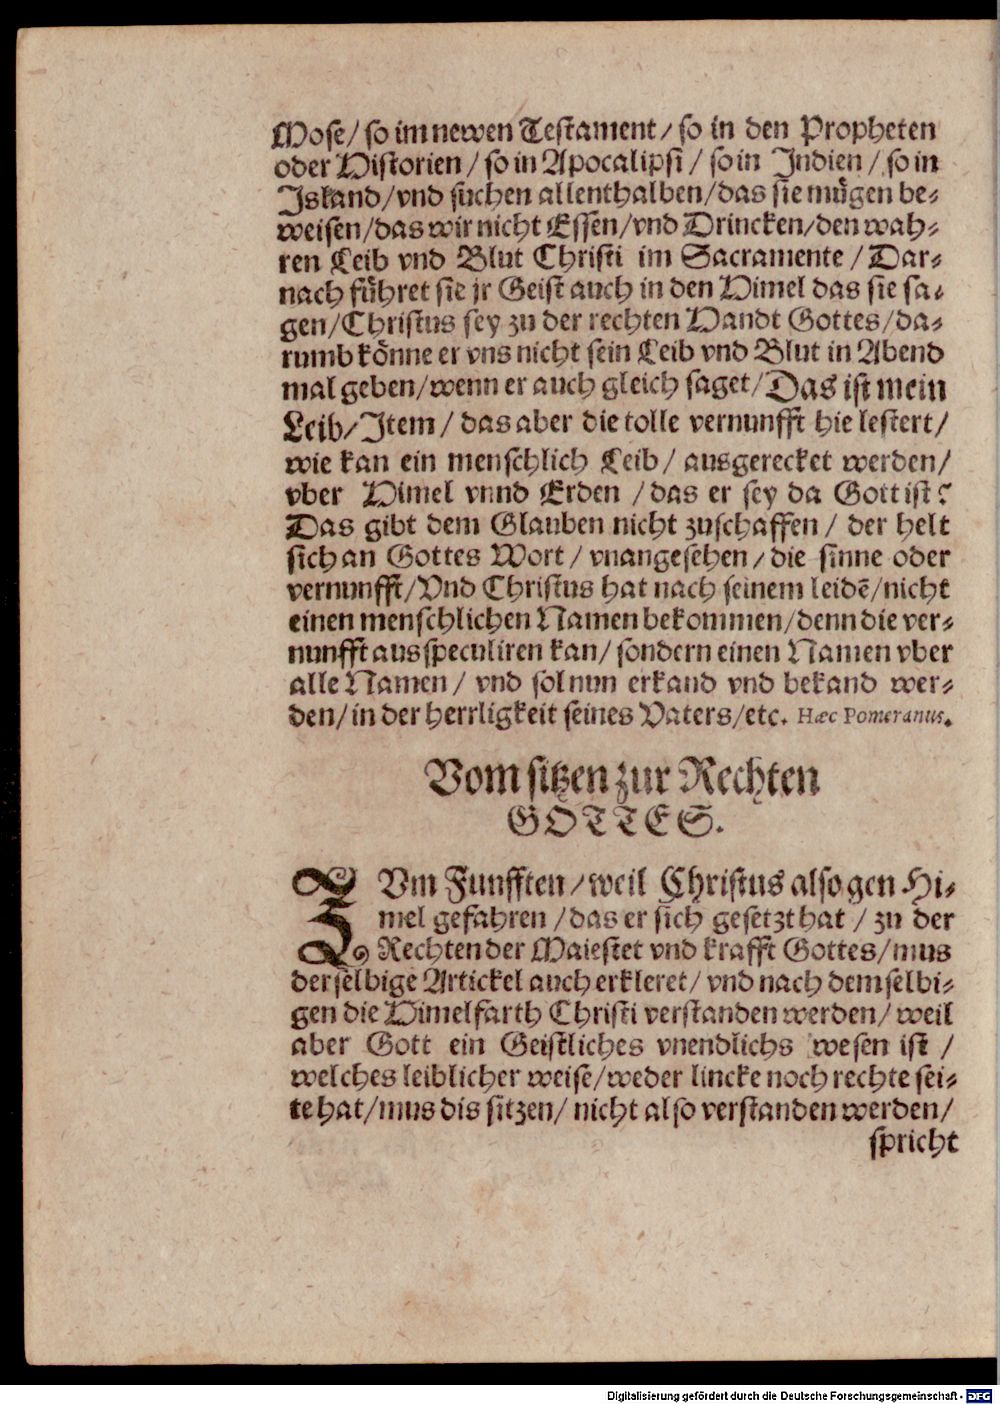 Mose/ so im newen Testament/ so in den Propheten
oder Historien/ so in Apocalipsi/ so in Indien/ so in
Jsland/ vnd suchen allenthalben/ das sie mügen be-
weisen/ das wir nicht Essen/ vnd Drincken/ den wah-
ren Leib vnd Blut Christi im Sacramente/ Dar-
nach führet sie jr Geist auch in den Himel das sie sa-
gen/ Christus sey zu der rechten Handt Gottes/ da-
rumb könne er vns nicht sein Leib vnd Blut in Abend
mal geben/ wenn er auch gleich saget/ Das ist mein
Leib/ Jtem/ das aber die tolle vernunfft hie lestert/
wie kan ein menschlich Leib/ ausgerecket werden/
vber Himel vnnd Erden/ das er sey da Gott ist?
Das gibt dem Glauben nicht zuschaffen/ der helt
sich an Gottes Wort/ vnangesehen/ die sinne oder
vernunfft/ Vnd Christus hat nach seinem leidē/ nicht
einen menschlichen Namen bekommen/ denn die ver-
nunfft ausspeculiren kan/ sondern einen Namen vber
alle Namen/ vnd sol nun erkand vnd bekand wer-
den/ in der herrligkeit seines Vaters/ etc. Hæc Pomeranus.
Vom sitzen zur Rechten
GOTTES.
ZVm Funfften/ weil Christus also gen Hi-
mel gefahren/ das er sich gesetzt hat/ zu der
Rechten der Maiestet vnd krafft Gottes/ mus
derselbige Artickel auch erkleret/ vnd nach demselbi-
gen die Himelfarth Christi verstanden werden/ weil
aber Gott ein Geistliches vnendlichs wesen ist/
welches leiblicher weise/ weder lincke noch rechte sei-
te hat/ mus dis sitzen/ nicht also verstanden werden/
spricht
Digitalisierung gefördert durch die Deutsche Forschungsgemeinschaft - DFG